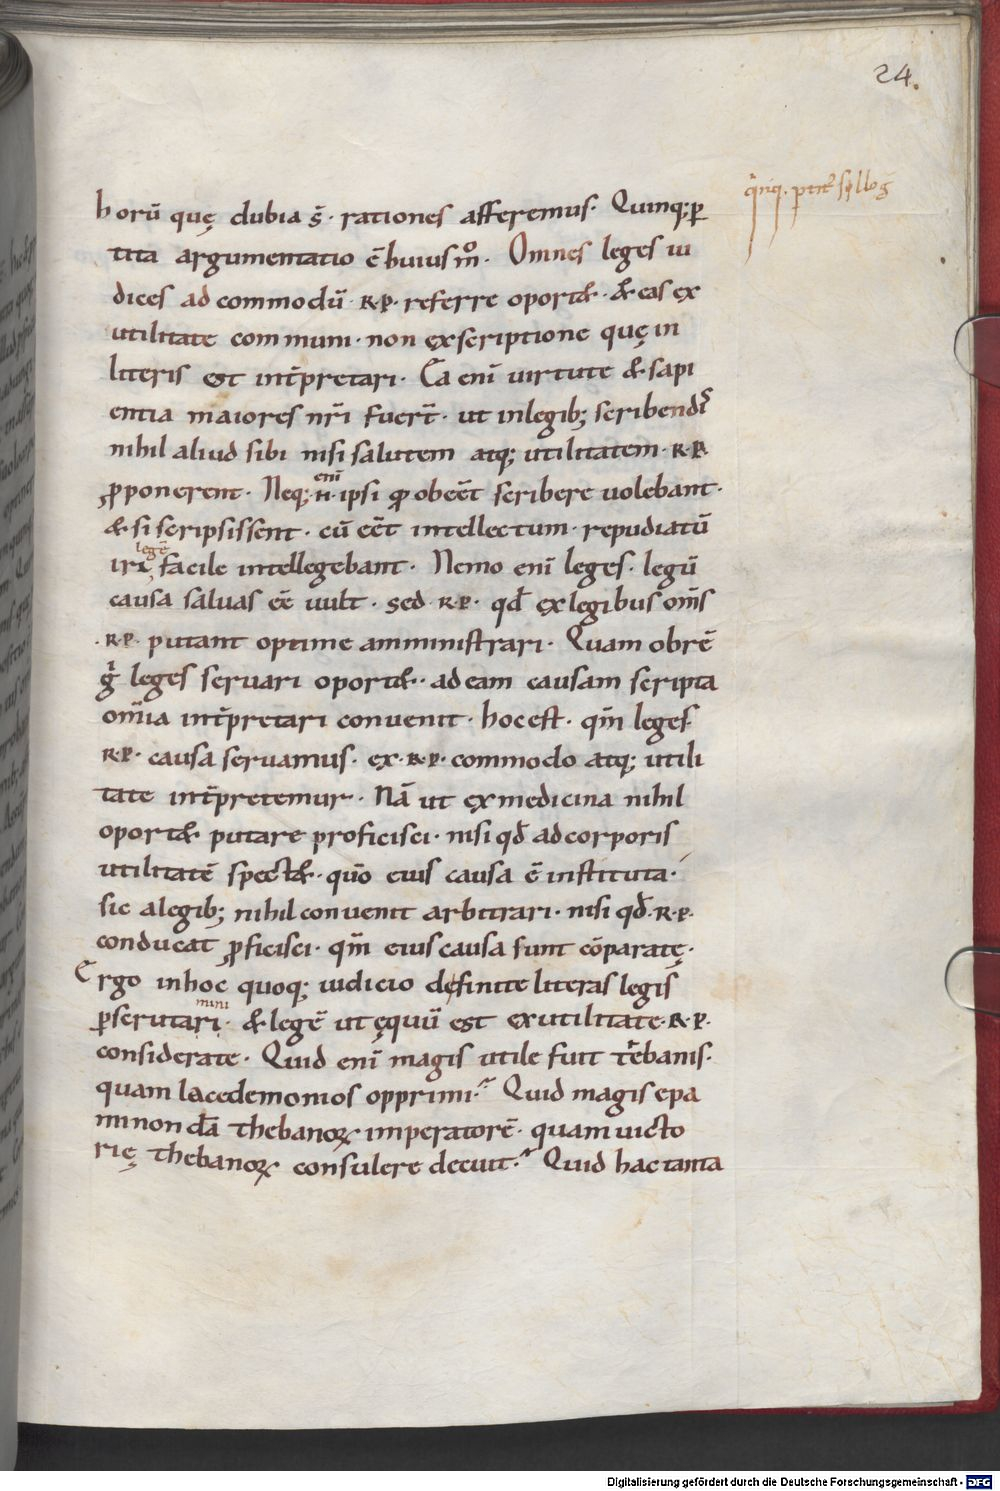 24.
q̾nq. ptit̾ sillog̅
horū quę dubia s̄· rationes afferemus· Quinq; ꝑ
tita argumentatio ē huius mͦ· Omnes leges iu
dices ad commodū ·R·P· referre oport&· & eas ex
utilitate communi· non exscriptione quę in
literis est int̄pretari· Ea eni̅ uirtute & sapi
entia maiores nr̄i fuer̄t· ut inlegib; scribendis
nihil aliud sibi nisi salutem atq; utilitatem ·R·P·
ꝓponerent· Neq; ·n· ipsi qđ obeēt scribere uolebant·
eni̅
& si scripsissent· cū eēt intellectum· repudiatū
legē
iri, facile intellegebant· Nemo eni̅ leges· legū
causa saluas eē uult· sed ·R·P· qđ ex legibus om̄s
·R·P· putant optime amministrari· Quam obrē
g̊ leges seruari oport&·· ad eam causam scripta
omīa int̄pretari conuenit· hoc est· qm̄ leges
R·P· causa seruamus· ex ·R·P· commodo atq; utili
tate int̄pretemur· Nā ut ex medicina nihil
oport& putare proficisci· nisi qđ ad corporis
utilitatē spect&· quo̅ eius causa ē instituta·
sic a legib; nihil conuenit arbitrari· nisi qđ ·R·P·
conducat ꝓficisci· qm̄ eius causa sunt cōparatę·
Ergo in hoc quoq; iudicio definite literas legis
mini
ꝑscrutari· & legē ut ęquū est ex utilitate ·R·P·
considerate· Quid eni̅ magis utile fuit t̄ebanis·
quam lacedemonios opprimi? Quid magis epa
minondā thebanoꝝ imperatorē· quam uicto
rię thebanoꝝ consulere decuit? Quid hac tanta
Digitalisierung gefördert durch die Deutsche Forschungsgemeinschaft - DFG